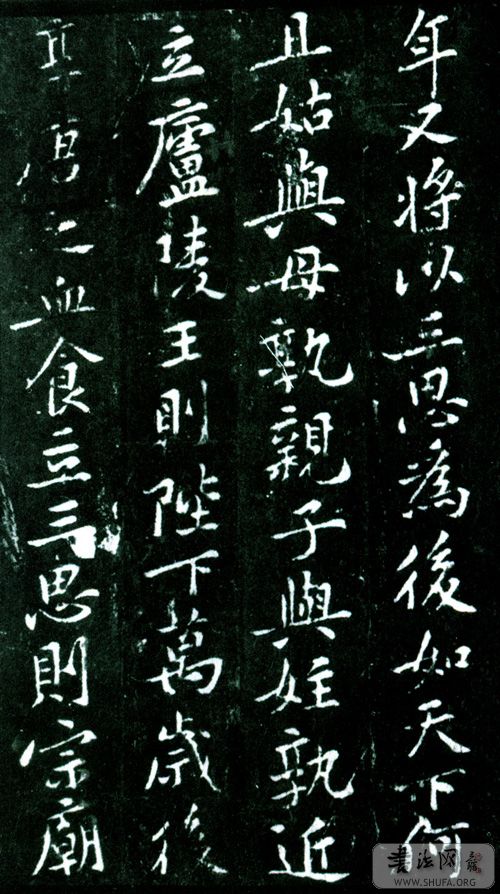 年又將以三思為後如天下何
且姑與母孰親子與姪孰近
立廬陵王則陛下萬歲後
享唐之血食立三思則宗廟
書法网
WWW.SHUFA.ORG